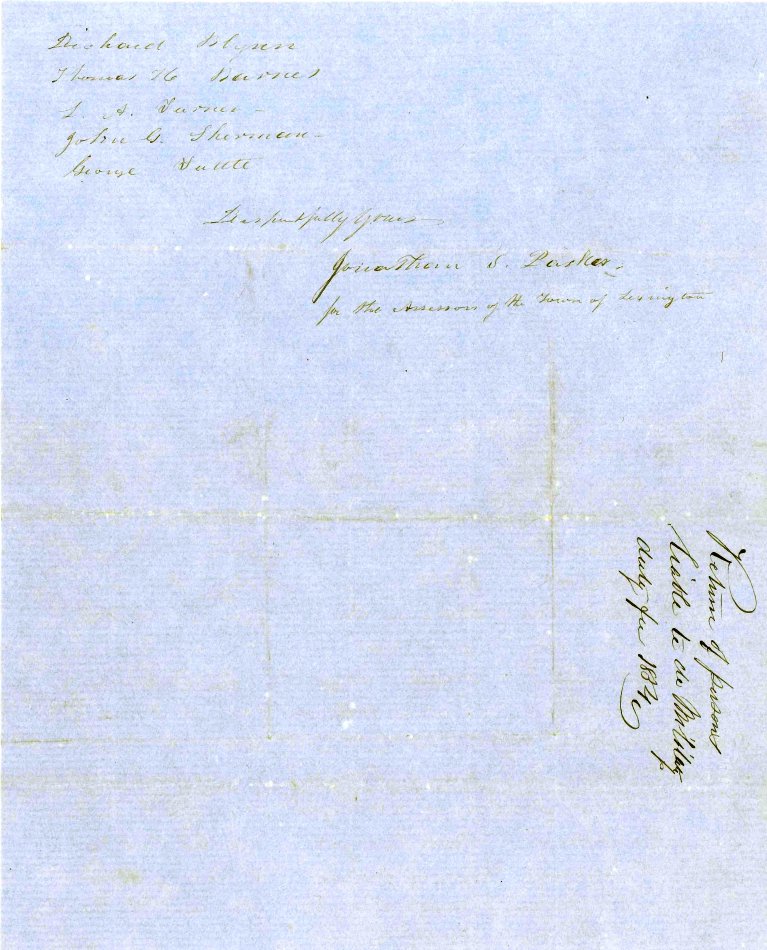 Richard Blynn
Thomas H Barnes
L. A. Turner
John G. Sherman
George Tuttle
Respectfully Yours
Jonathan S. Parker
for the Assessors of the Town of Lexington
Return of persons
liable to do Military
duty for